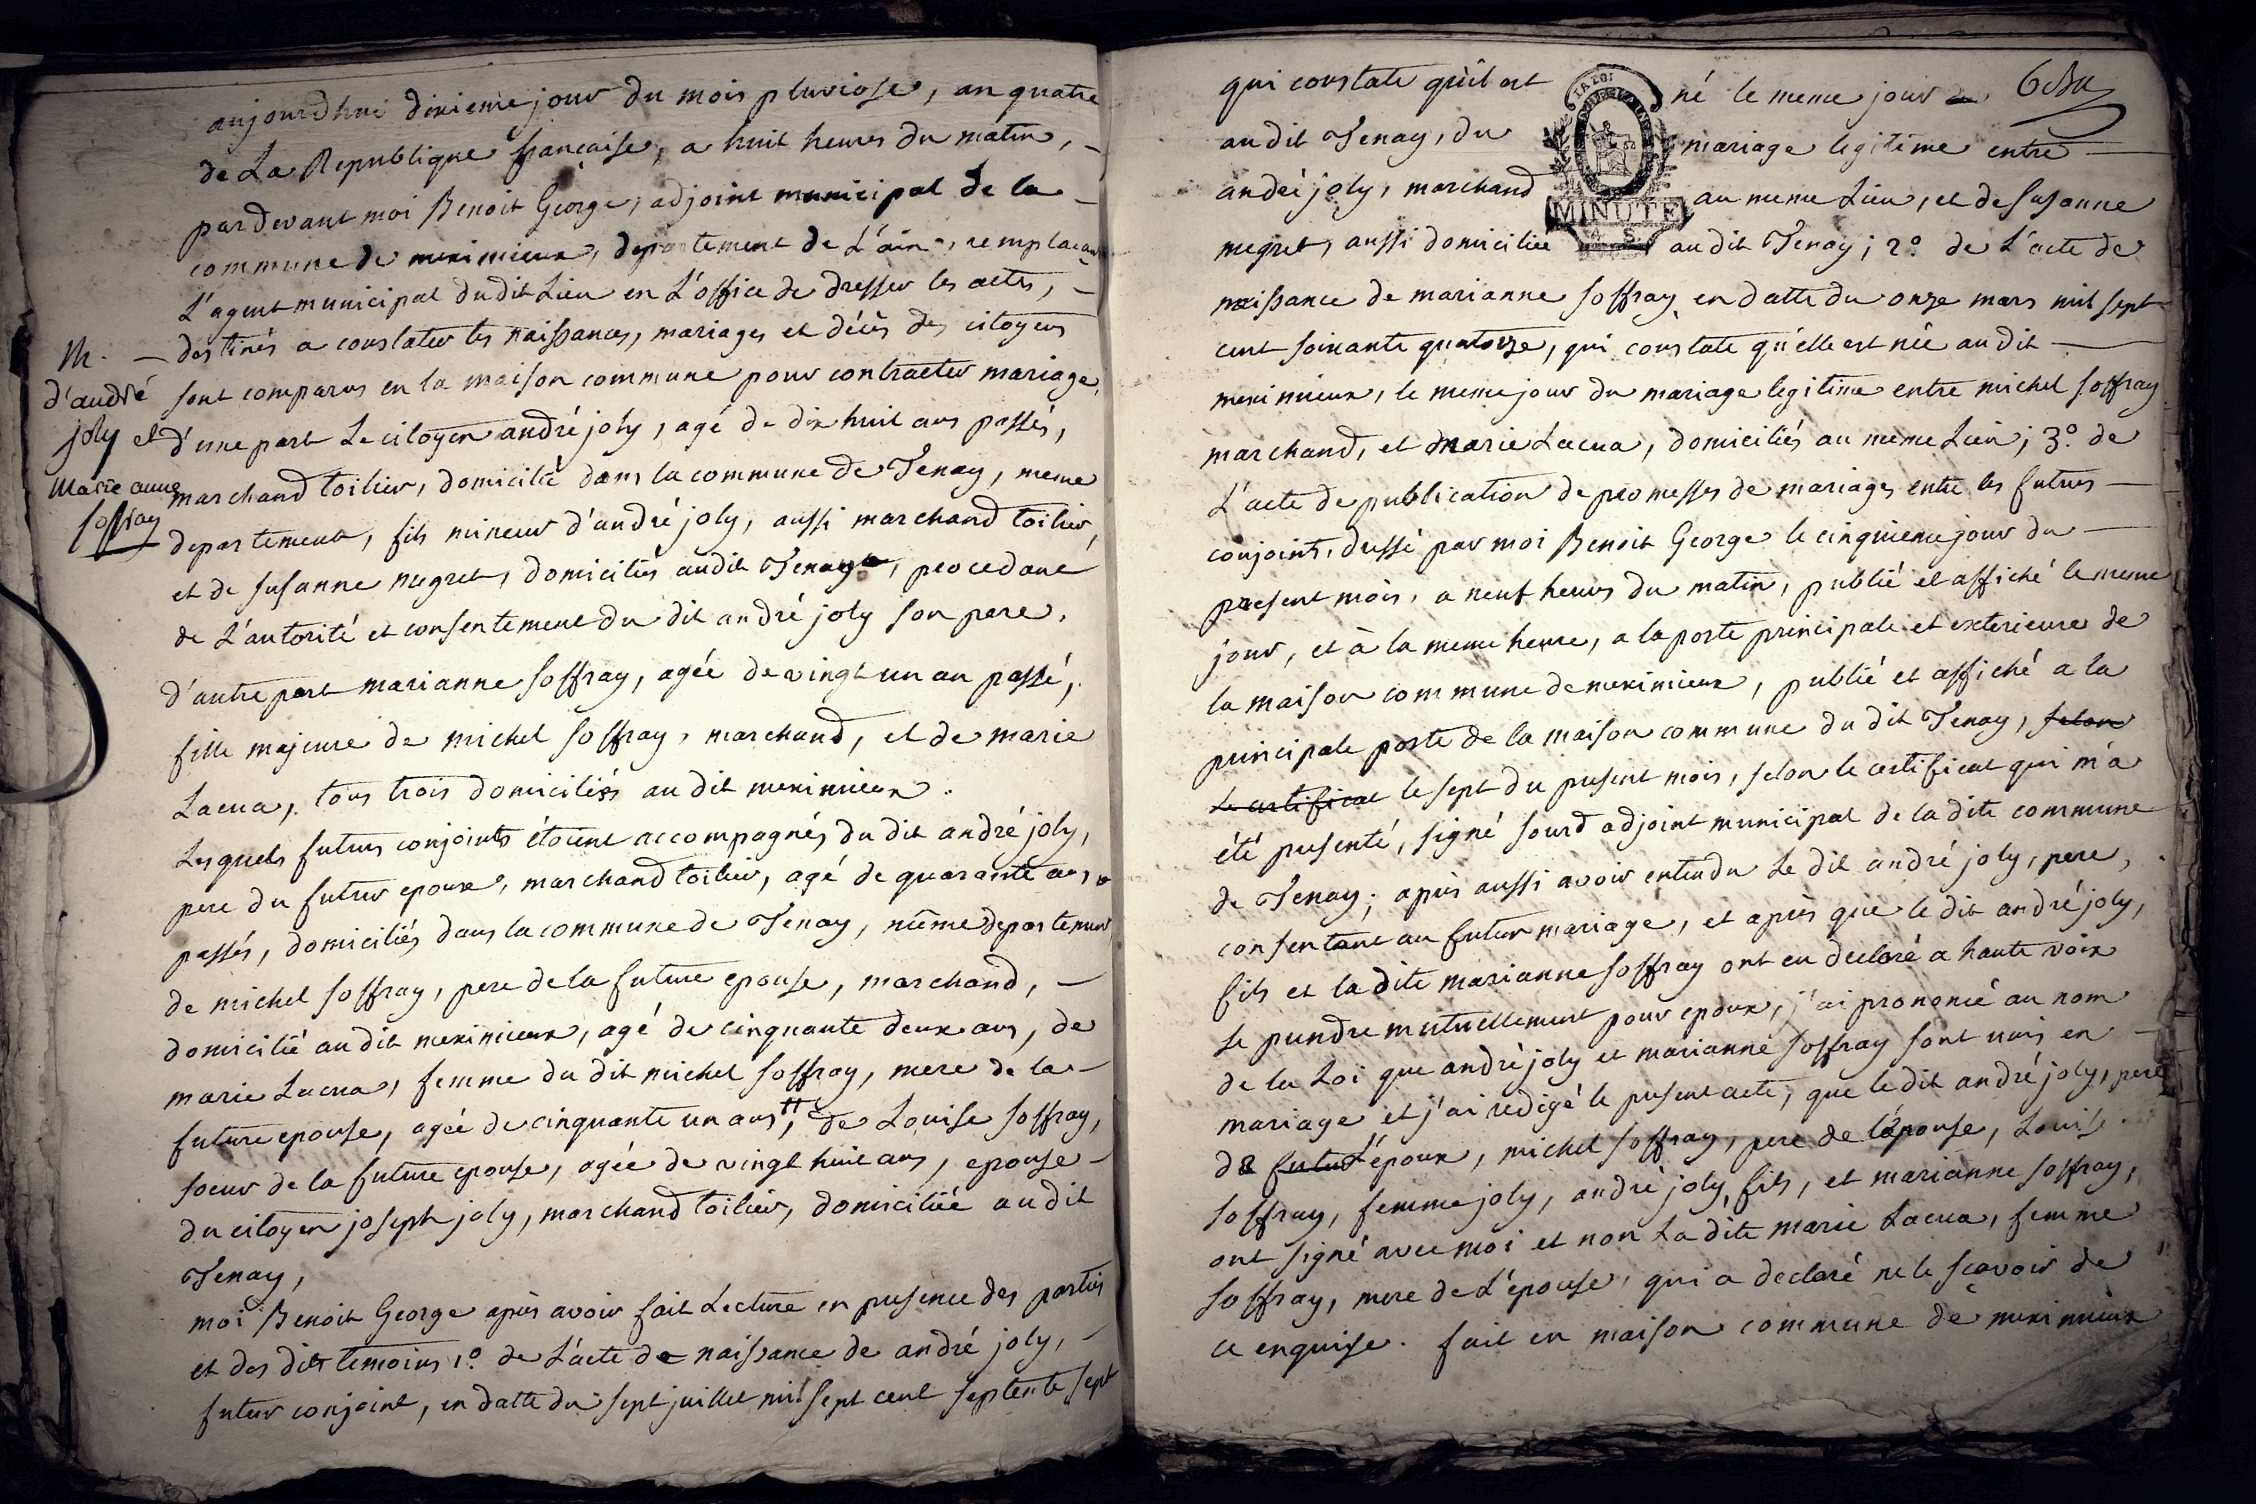 aujourdhui dixieme jour du mois pluviose, an quatre
de La Republique française, a huit heures du matin,
pardevant moi Benoit George, adjoint municipal de la
commune de meximieux, departement de L'ain, remplacant
L'agent municipal dudit Lieu en L'office de dresser les actes,
destinés a constater les naissances, mariages et décès des citoyens
sont comparus en la maison commune pour contracter mariage,
d'une part Le citoyen andré joly, agé de dix huit ans passés,
marchand toilier, domicilié dans la commune de Tenay, meme
departement, fils mineur d'andré joly, aussi marchand toilier,
et de susanne negret, domiciliés audit Tenay, procedant
de L'autorité et consentement du dit andré joly son pere,
d'autre part marianne soffray, agée de vingt un an passé,
fille majeure de michel soffray, marchand, et de marie
Lacua, tous trois domiciliés audit meximieux.
Lesquels futurs conjoints étoient accompagnés du dit andré joly,
pere du futur epoux, marchand toilier, agé de quarante ans
passés, domiciliés dans la commune de Tenay, même departement
de michel soffray, pere de la future epouse, marchand,
domicilié audit meximieux, agé de cinquante deux ans, de
marie Lacua, femme du dit michel soffray, mere de la
future epouse, agée de cinquante un ans, de Louise soffray,
soeur de la future epouse, agée de vingt huit ans, epouse
du citoyen joseph joly, marchand toilier, domiciliée audit
Tenay,
moi Benoit George après avoir fait Lecture en presence des parties
et des dits temoins 1o. de L'acte de naissance de andré joly,
futur conjoint, en datte du sept juillet mil sept cent septente sept
M.
d'andré
joly et
Marie anne
soffray
qui constate qu'il est né le meme jour
audit Tenay, du mariage legitime entre
andré joly, marchand au meme Lieu, et de susanne
negret, aussi domiciliée audit Tenay; 2o. de L'acte de
naissance de marianne soffray en datte du onze mars mil sept
cent soixante quatorze, qui constate qu'elle est née audit
meximieux, le meme jour du mariage legitime entre michel soffray
marchand, et marie Lacua, domiciliés au meme Lieu; 3o. de
L'acte de publication de promesses de mariages entre les futurs
conjoints, dressé par moi Benoit George le cinquieme jour du
present mois, a neuf heures du matin, publié et affiché le meme
jour, et à la meme heure, a la porte principale et exterieure de
la maison commune de meximieux, publié et affiché a la
principale porte de la maison commune du dit Tenay, selon
le certificat le sept du present mois, selon le certificat qui m'a
été presenté, signé sourd adjoint municipal de la dite commune
de Tenay; après aussi avoir entendu Le dit andré joly, pere,
consentant au futur mariage, et après que le dit andré joly,
fils et la dite marianne soffray ont eu declaré a haute voix
se prendre mutuellement pour epoux, j'ai prononcé au nom
de la Loi que andré joly et marianne soffray sont unis en
mariage et j'ai redigé le present acte, que le dit andré joly, pere
de futur L'époux, michel soffray, pere de l'épouse, Louise
soffray, femme joly, andré joly, fils, et marianne soffray,
ont signé avec moi et non La dite marie Lacua, femme
soffray, mere de L'épouse, qui a declaré ne le sçavoir de
ce enquise. fait en maison commune de meximieux
LA LOI
MINUTE
4 S.